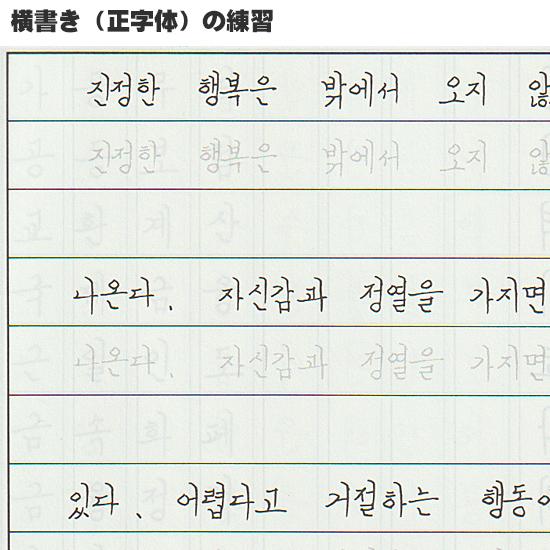 横書き（正字体）の練習
진정한 행복은 밖에서 오지
진정한 행복은 밖에서 오지
나온다. 자신감과 정열을 가지면
나온다. 자신감과 정열을 가지면
있다. 어렵다고 거절하는 행동